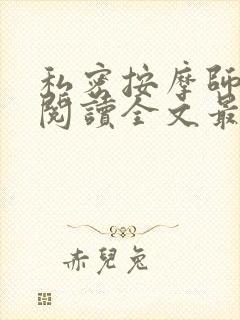 私密按摩師
閱讀全文最
赤兒兔